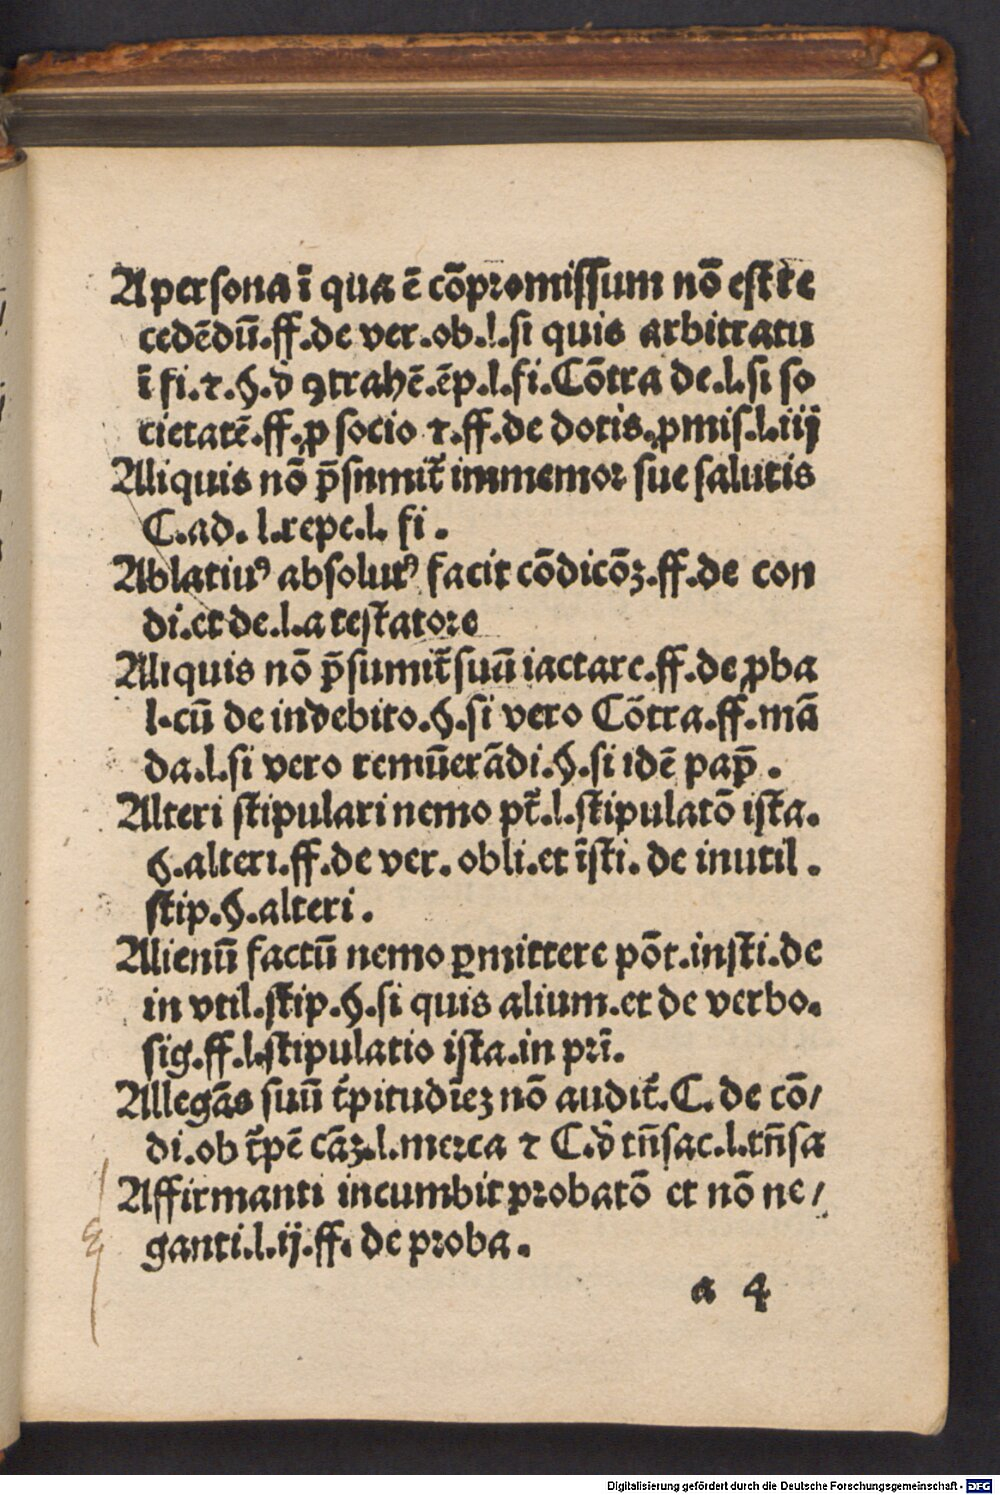 A persona ī qua ē cōpromissum nō est re
cedēdū.ff.de ver.ob.l.si quis arbitratu
ī fi.⁊.§.ð ꝯtrahē.ēp.l.fi.Cōtra de.l.si so
cietatē.ff.ꝓ socio ⁊.ff.de dotis.ꝓmis.l.iij
Aliquis nō p̄sumit᷑ immemor sue salutis
C.ad.l.repe.l.fi.
Ablatiuꝰ absolutꝰ facit cōdicōꝫ.ff.de con
di.et de.l.a testatore
Aliquis nō p̄sumit᷑ suū iactare.ff.de ꝓba
l.cū de indebito.§.si vero Cōtra.ff.mā
da.l.si vero remūerādi.§.si idē pap̄.
Alteri stipulari nemo pt̄.l.stipulatō ista.
§.alteri.ff.de ver.obli.et īsti.de inutil.
stip.§.alteri.
Alienū factū nemo ꝑmittere pōt.insti.de
in vtil.stip.§.si quis alium.et de verbo.
sig.ff.l.stipulatio ista.in prī.
Allegās suū t᷑pitudīeꝫ nō audit᷑.C.de cō/
di.ob t᷑pē cāꝫ.l.merca ⁊ C.ð tn̄sac.l.tn̄sa
Affirmanti incumbit probatō et nō ne/
ganti.l.ij.ff.de proba.
a 4
Digitalisierung gefördert durch die Deutsche Forschungsgemeinschaft - DFG